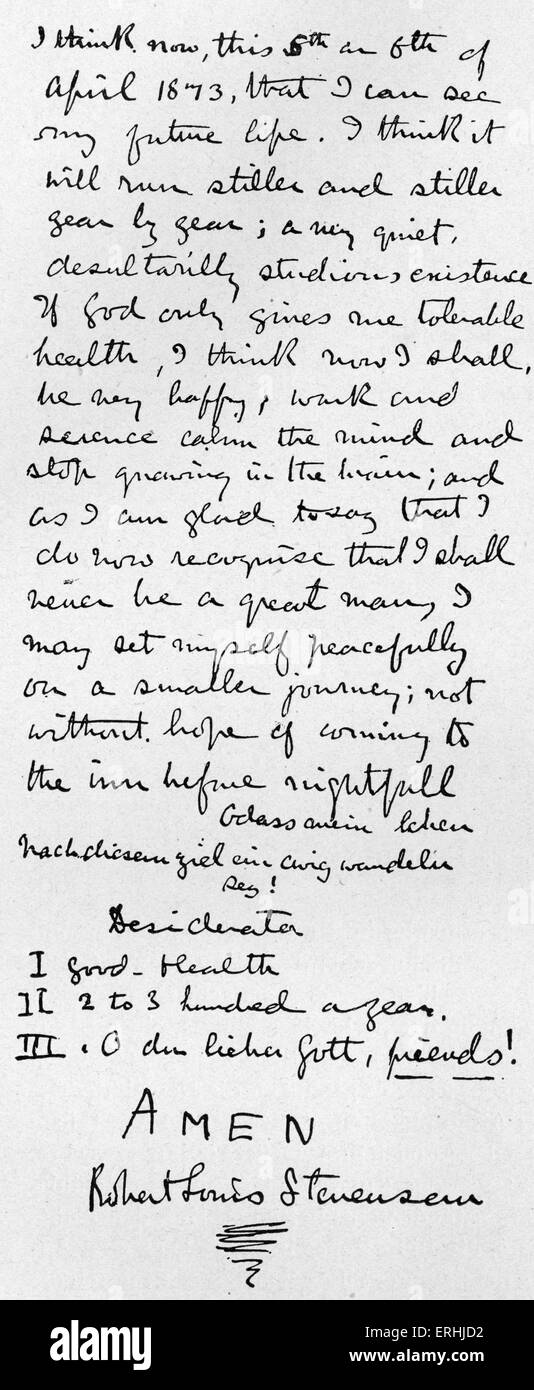 I think now, this 5th or 6th of
April 1873, that I can see
my future life. I think it
will run stiller and stiller
year by year; a very quiet,
desultorily studious existence
If God only gives me tolerable
health, I think now I shall
be very happy; work and
science calm the mind and
stop gnawing in the brain; and
as I am glad to say that I
do now recognise that I shall
never be a great man, I
may set myself peacefully
on a smaller journey; not
without hope of coming to
the inn before nightfall
O dass mein leben
nach diesem ziel ein ewig wandeln
sey!
Desiderata
I good-Health
II 2 to 3 hundred a year.
III. O du lieber Gott, friends!
AMEN
Robert Louis Stevenson
alamy
alamy stock photo
ERHJD2
www.alamy.com